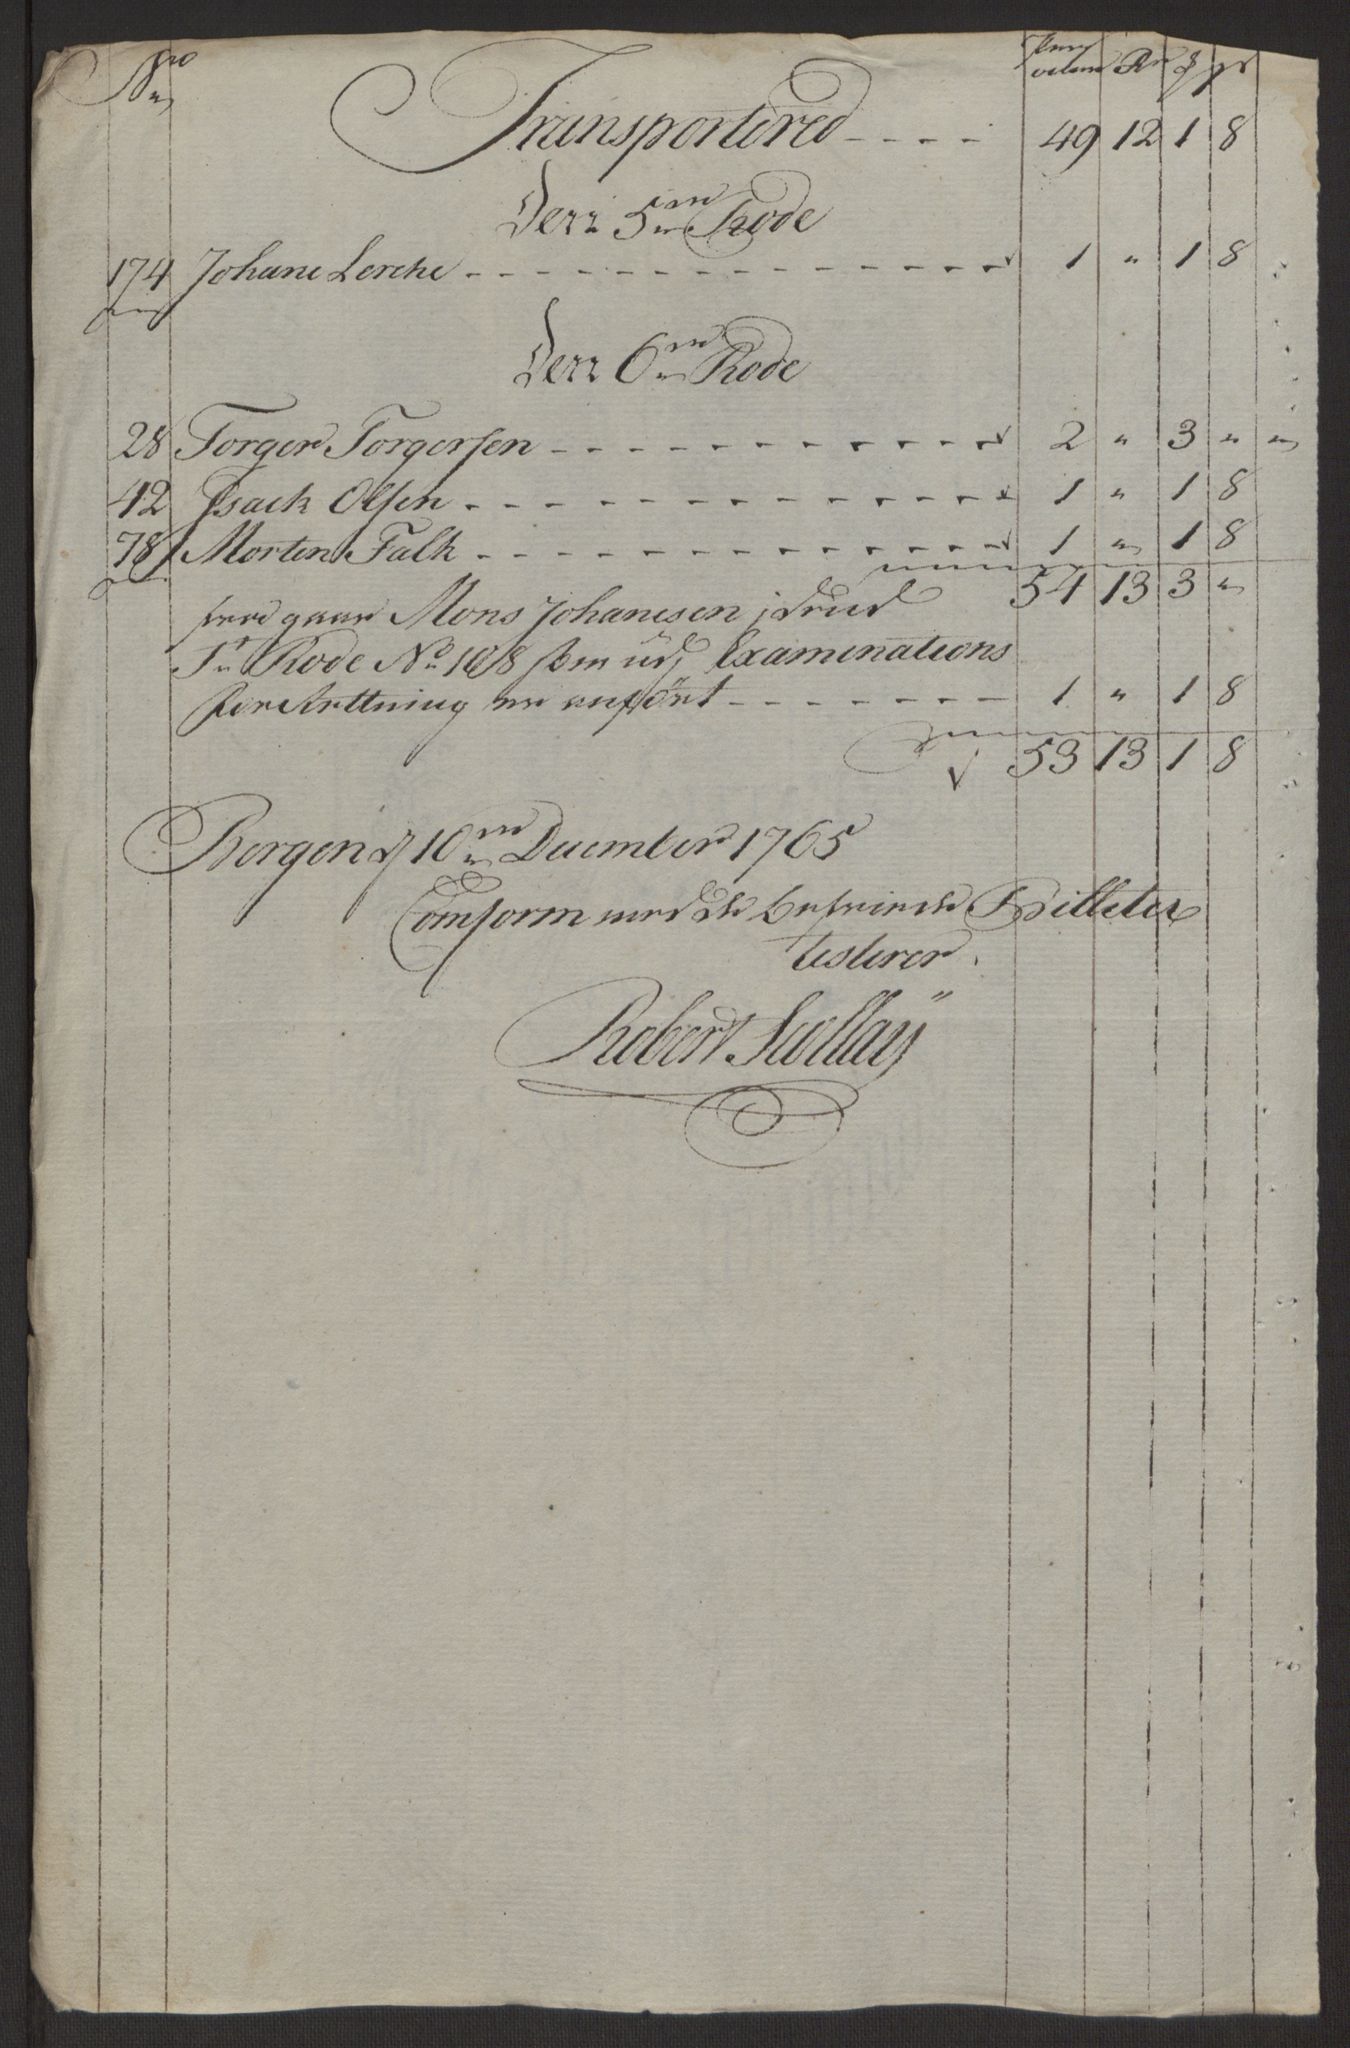 No Per sohner Rd ß
Transportered - - - - 49 12 1 8
Den 5te Rode
174 Johane Lerche - - - - 1 " 1 8
Den 6te Rode
28 Torger Torgersen - - - - 2 " 3 "
42 Isack Olsen - - - - 1 " 1 8
78 Morten Falk - - - - 1 " 1 8
54 13 3 "
gaar Mons Johanesen i den
Rode No 108 som udj Examinations
Forrettning er anført - - - - 1 " 1 8
53 13 1 8
Bergen d 10de December 1765
Conform med de Billeter
testerer
Robert Scollay